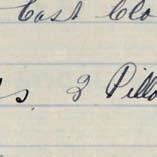 Cast Clo
s. 2 Pillo